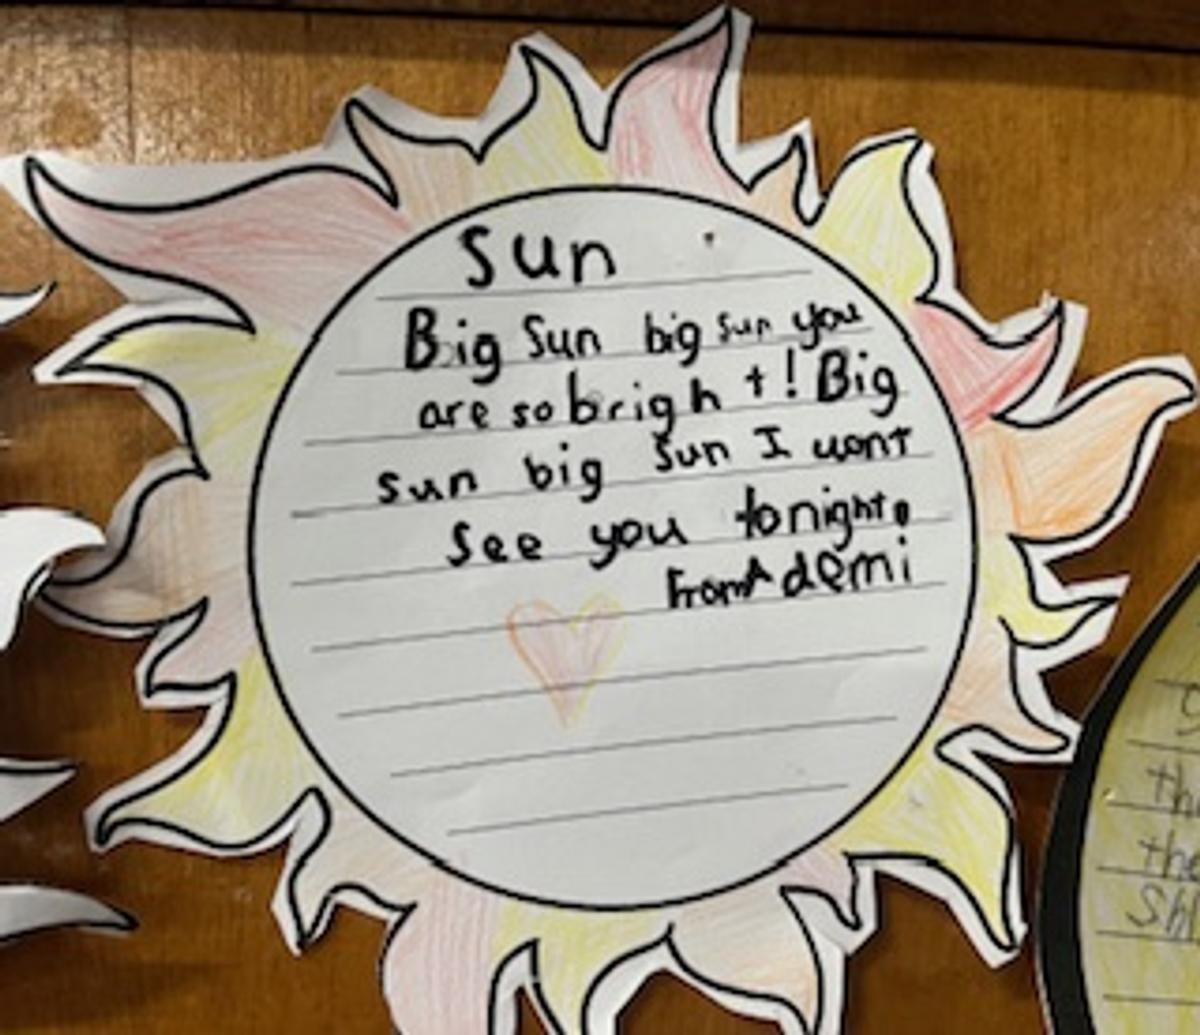 Sun
Big Sun big sun you
are so bright! Big
sun big Sun I wont
See you tonight.
From Ademi
th
the
Sh